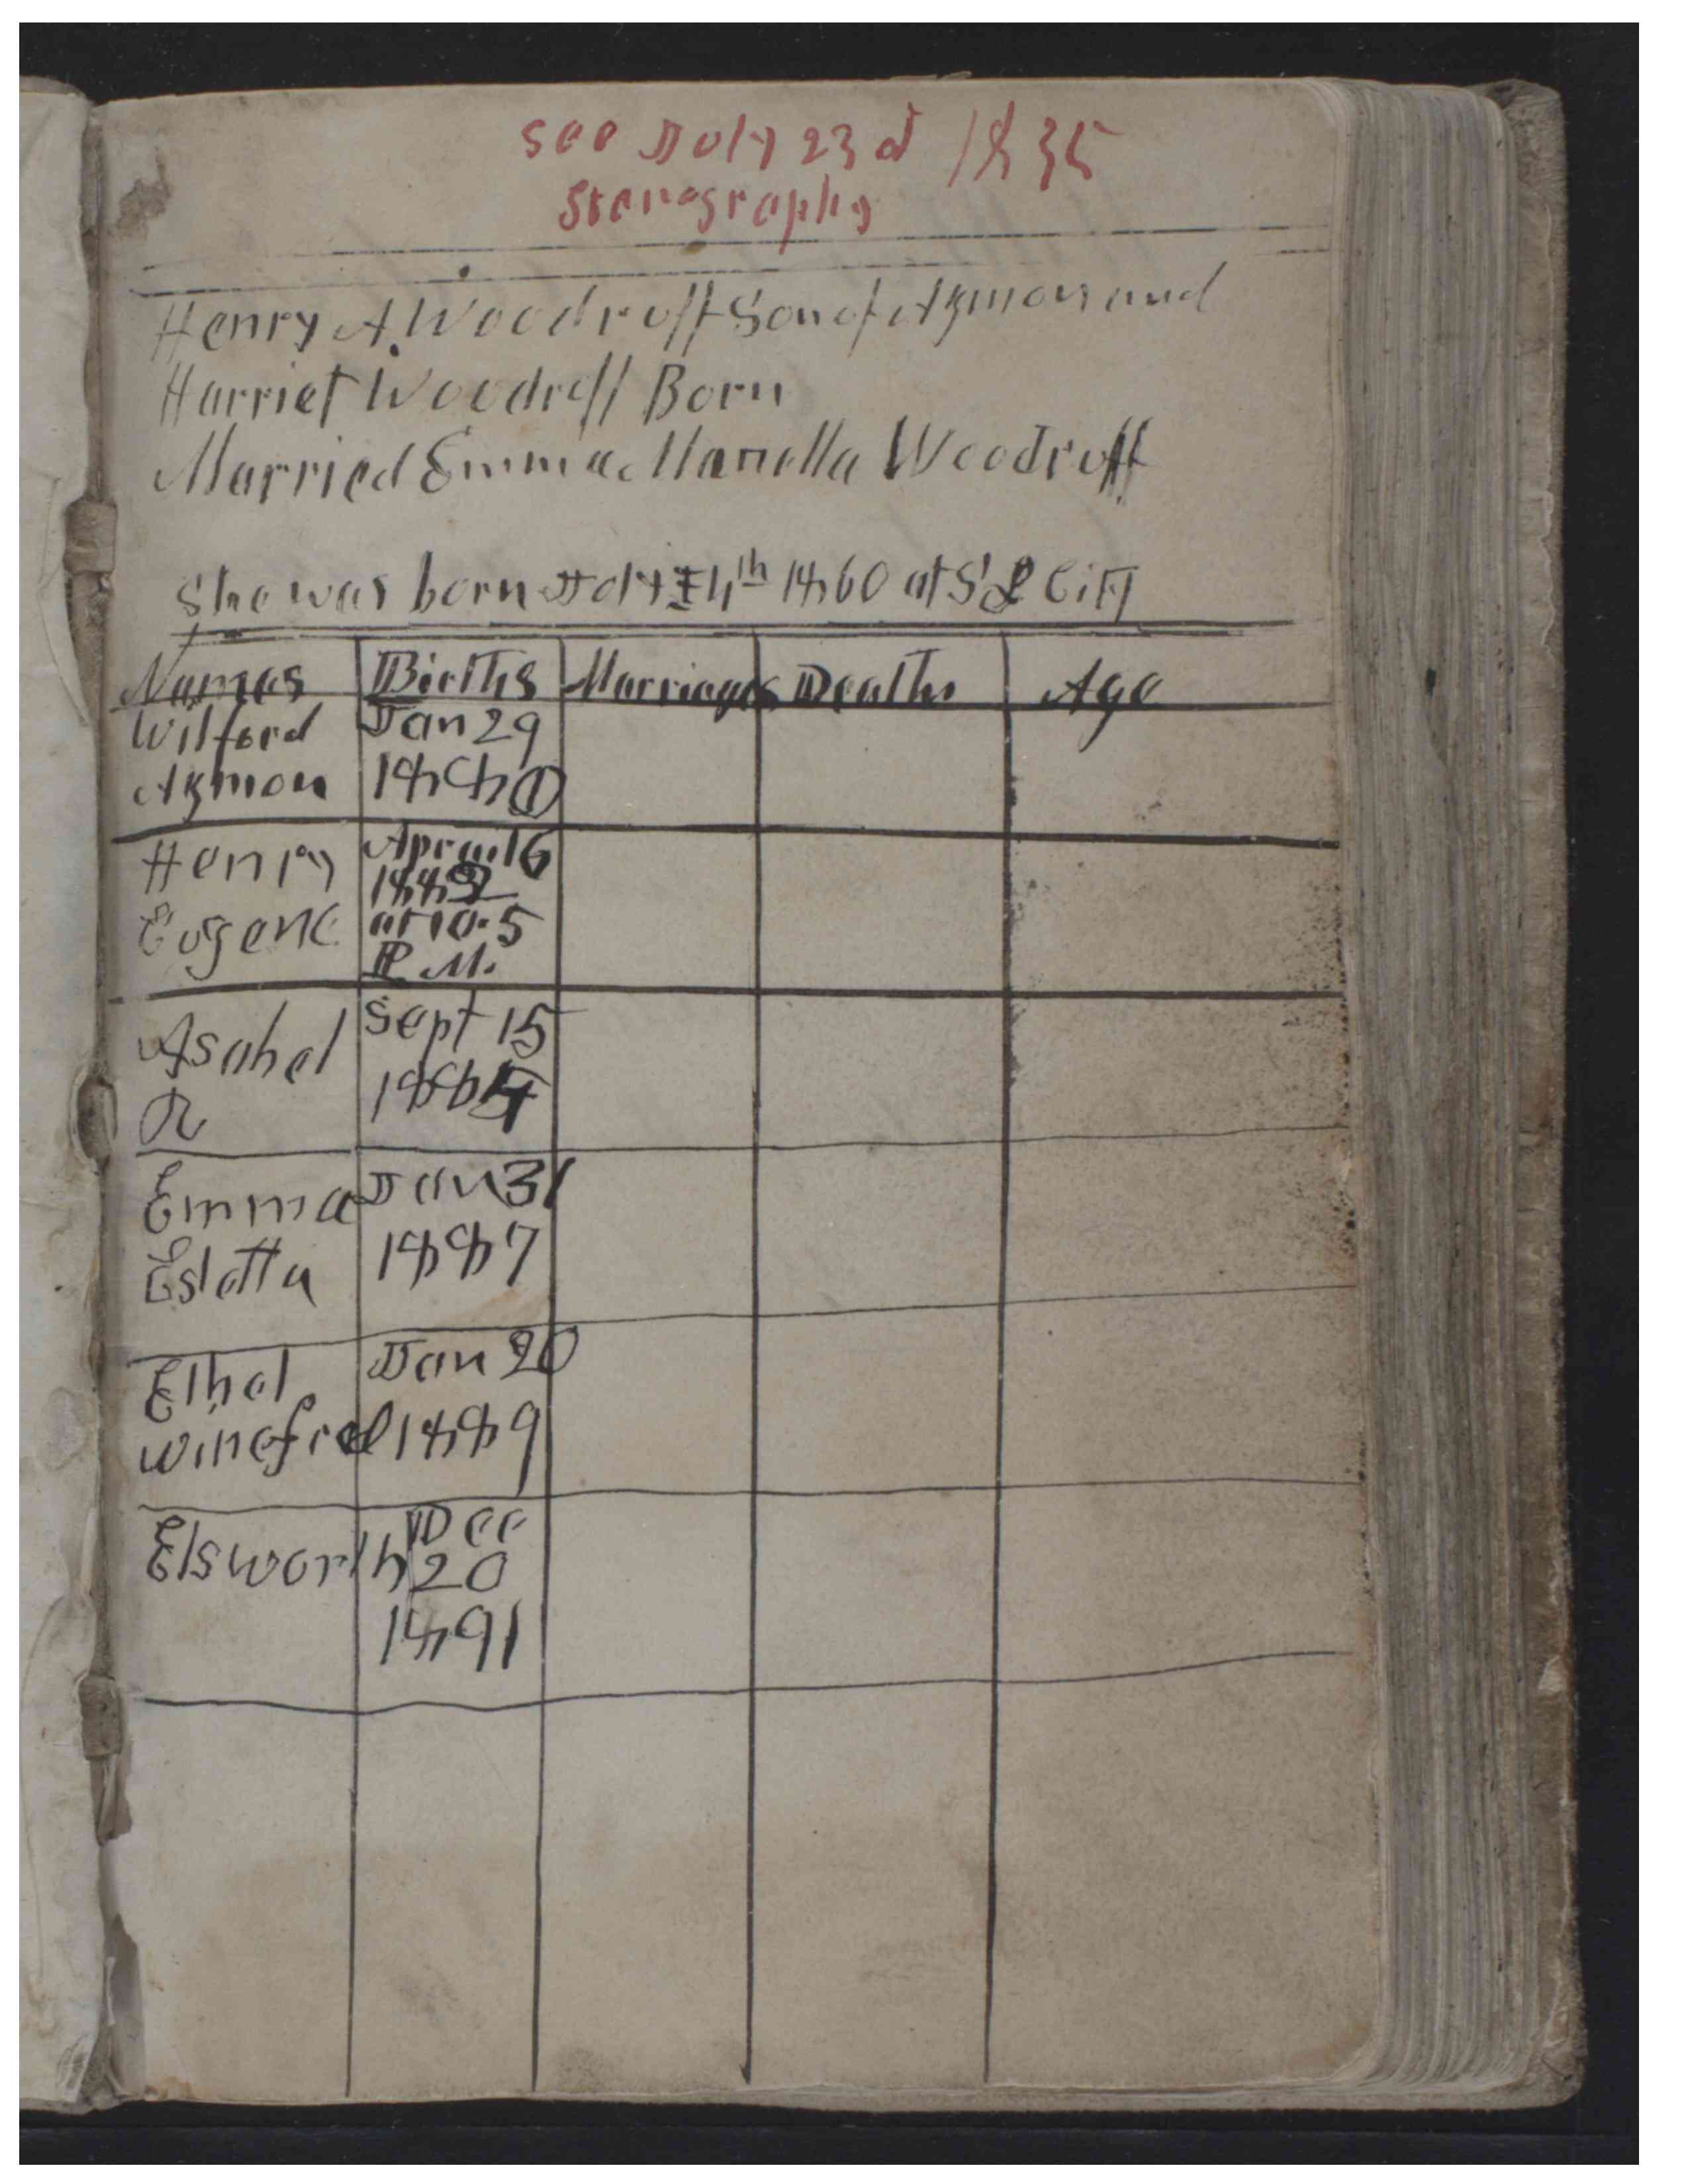 See July 23d 1835
Stenography
Henry A Woodruff Son of Azmon and
Harriet Woodruff Born
Married Emma Manella Woodruff
She was born July 4th 1860 at S L City
Names Births Marriages Deaths Age
Wilford Jan 29
Azmon 1881
Henry April 16
1882
Eugene at 10.5
P. M.
Asahel Sept 15
1884
R
Emma Jan 31
Estella 1887
Ethel Jan 20
Winefred 1889
Elsworth Dec
20
1891